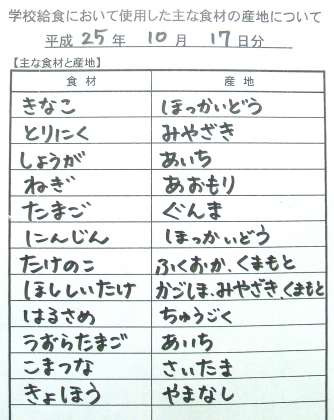 学校給食において使用した主な食材の産地について
平成 25 年 10 月 17 日分
【主な食材と産地】
食材 産地
きなこ ほっかいどう
とりにく みやざき
しょうが あいち
ねぎ あおもり
たまご ぐんま
にんじん ほっかいどう
たけのこ ふくおか、くまもと
ほししいたけ かごしま、みやざき、くまもと
はるさめ ちゅうごく
うずらたまご あいち
こまつな さいたま
きょほう やまなし